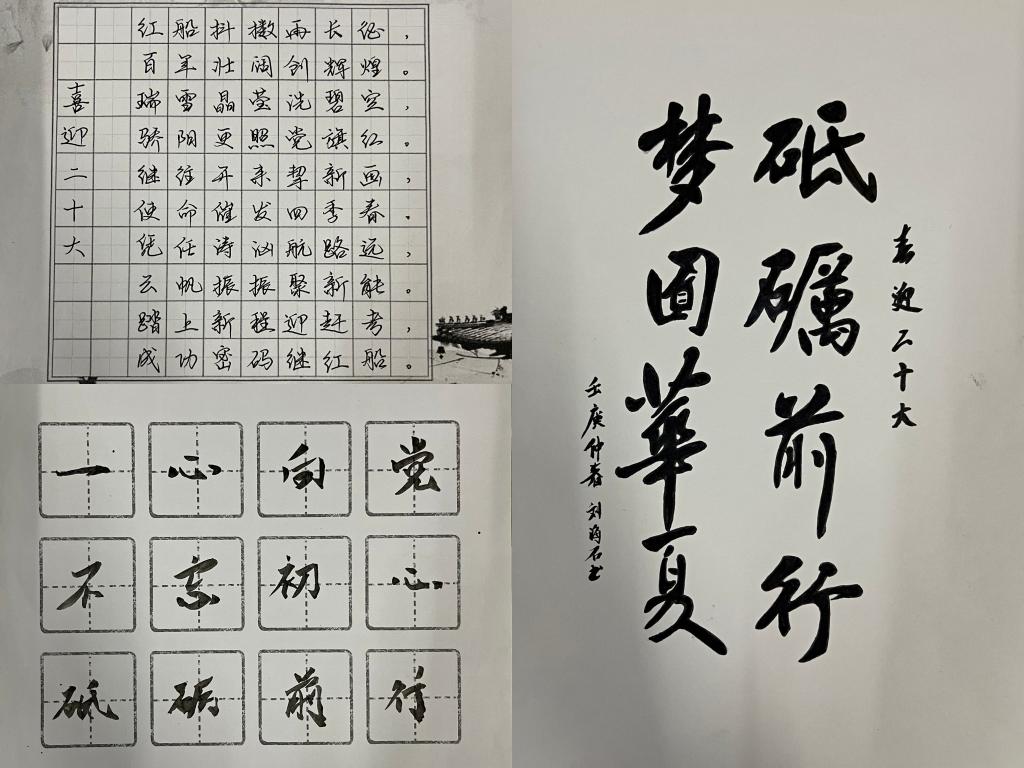 喜迎二十大
红船抖擞再长征，
百年壮阔创辉煌。
瑞雪晶莹洗碧空，
骄阳更照党旗红。
继往开来挈新画，
使命催发四季春。
绕任涛汹航路远，
云帆振振聚新能。
踏上新程迎赶考，
成功密码继红船。
一心向党
不忘初心
砥砺前行
喜迎二十大
砥砺前行
梦圆华夏
壬庚仲春 刘海石书